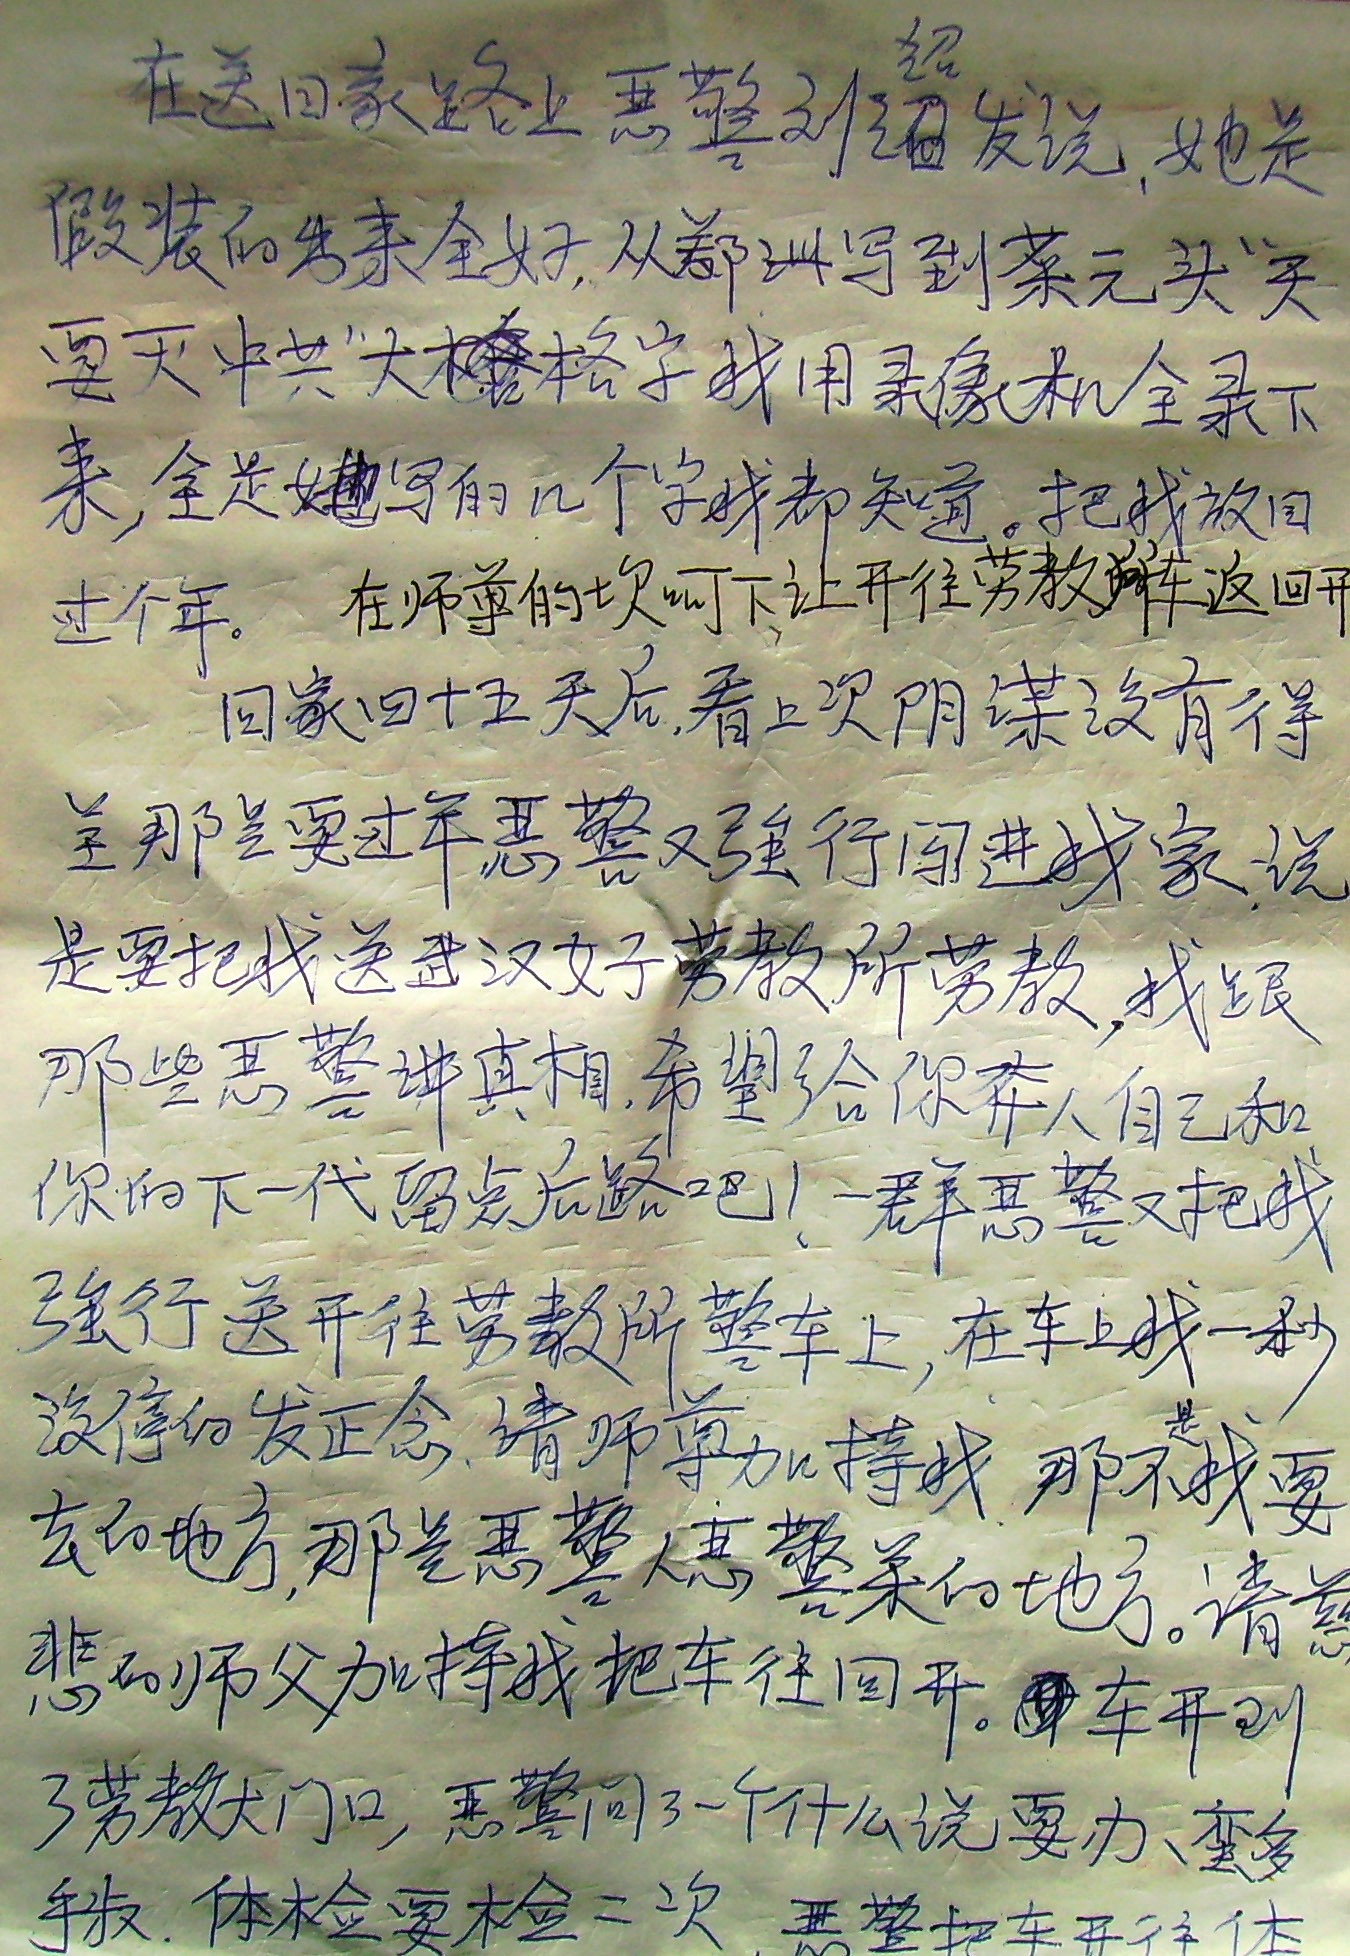 在送回家路上恶警刘绍发说,她是
假装的出来全好,从郑洲写到菜元头"天
要灭中共"大格字我用录像机全录下
来,全是她写的几个字我都知道。把我放回
过个年。 在师尊的坎呵下,让开往劳教车返回开
回家四十五天后,看上次阴谋没有得
呈那是要过年恶警又强行闯进我家,说
是要把我送武汉女子劳教所劳教,我跟
那些恶警讲真相,希望给你本人自己和
你的下一代留点后路吧!一群恶警又把我
强行送开往劳教所警车上,在车上我一秒
没停的发正念,请师尊加持我 那不是我要
去的地方,那是恶警人恶警呆的地方。请慈
悲的师父加持我把车往回开。车开到
了劳教大门口,恶警问了一个什么说要办、蛮多
手续.体检要检二次 恶警把车开往体